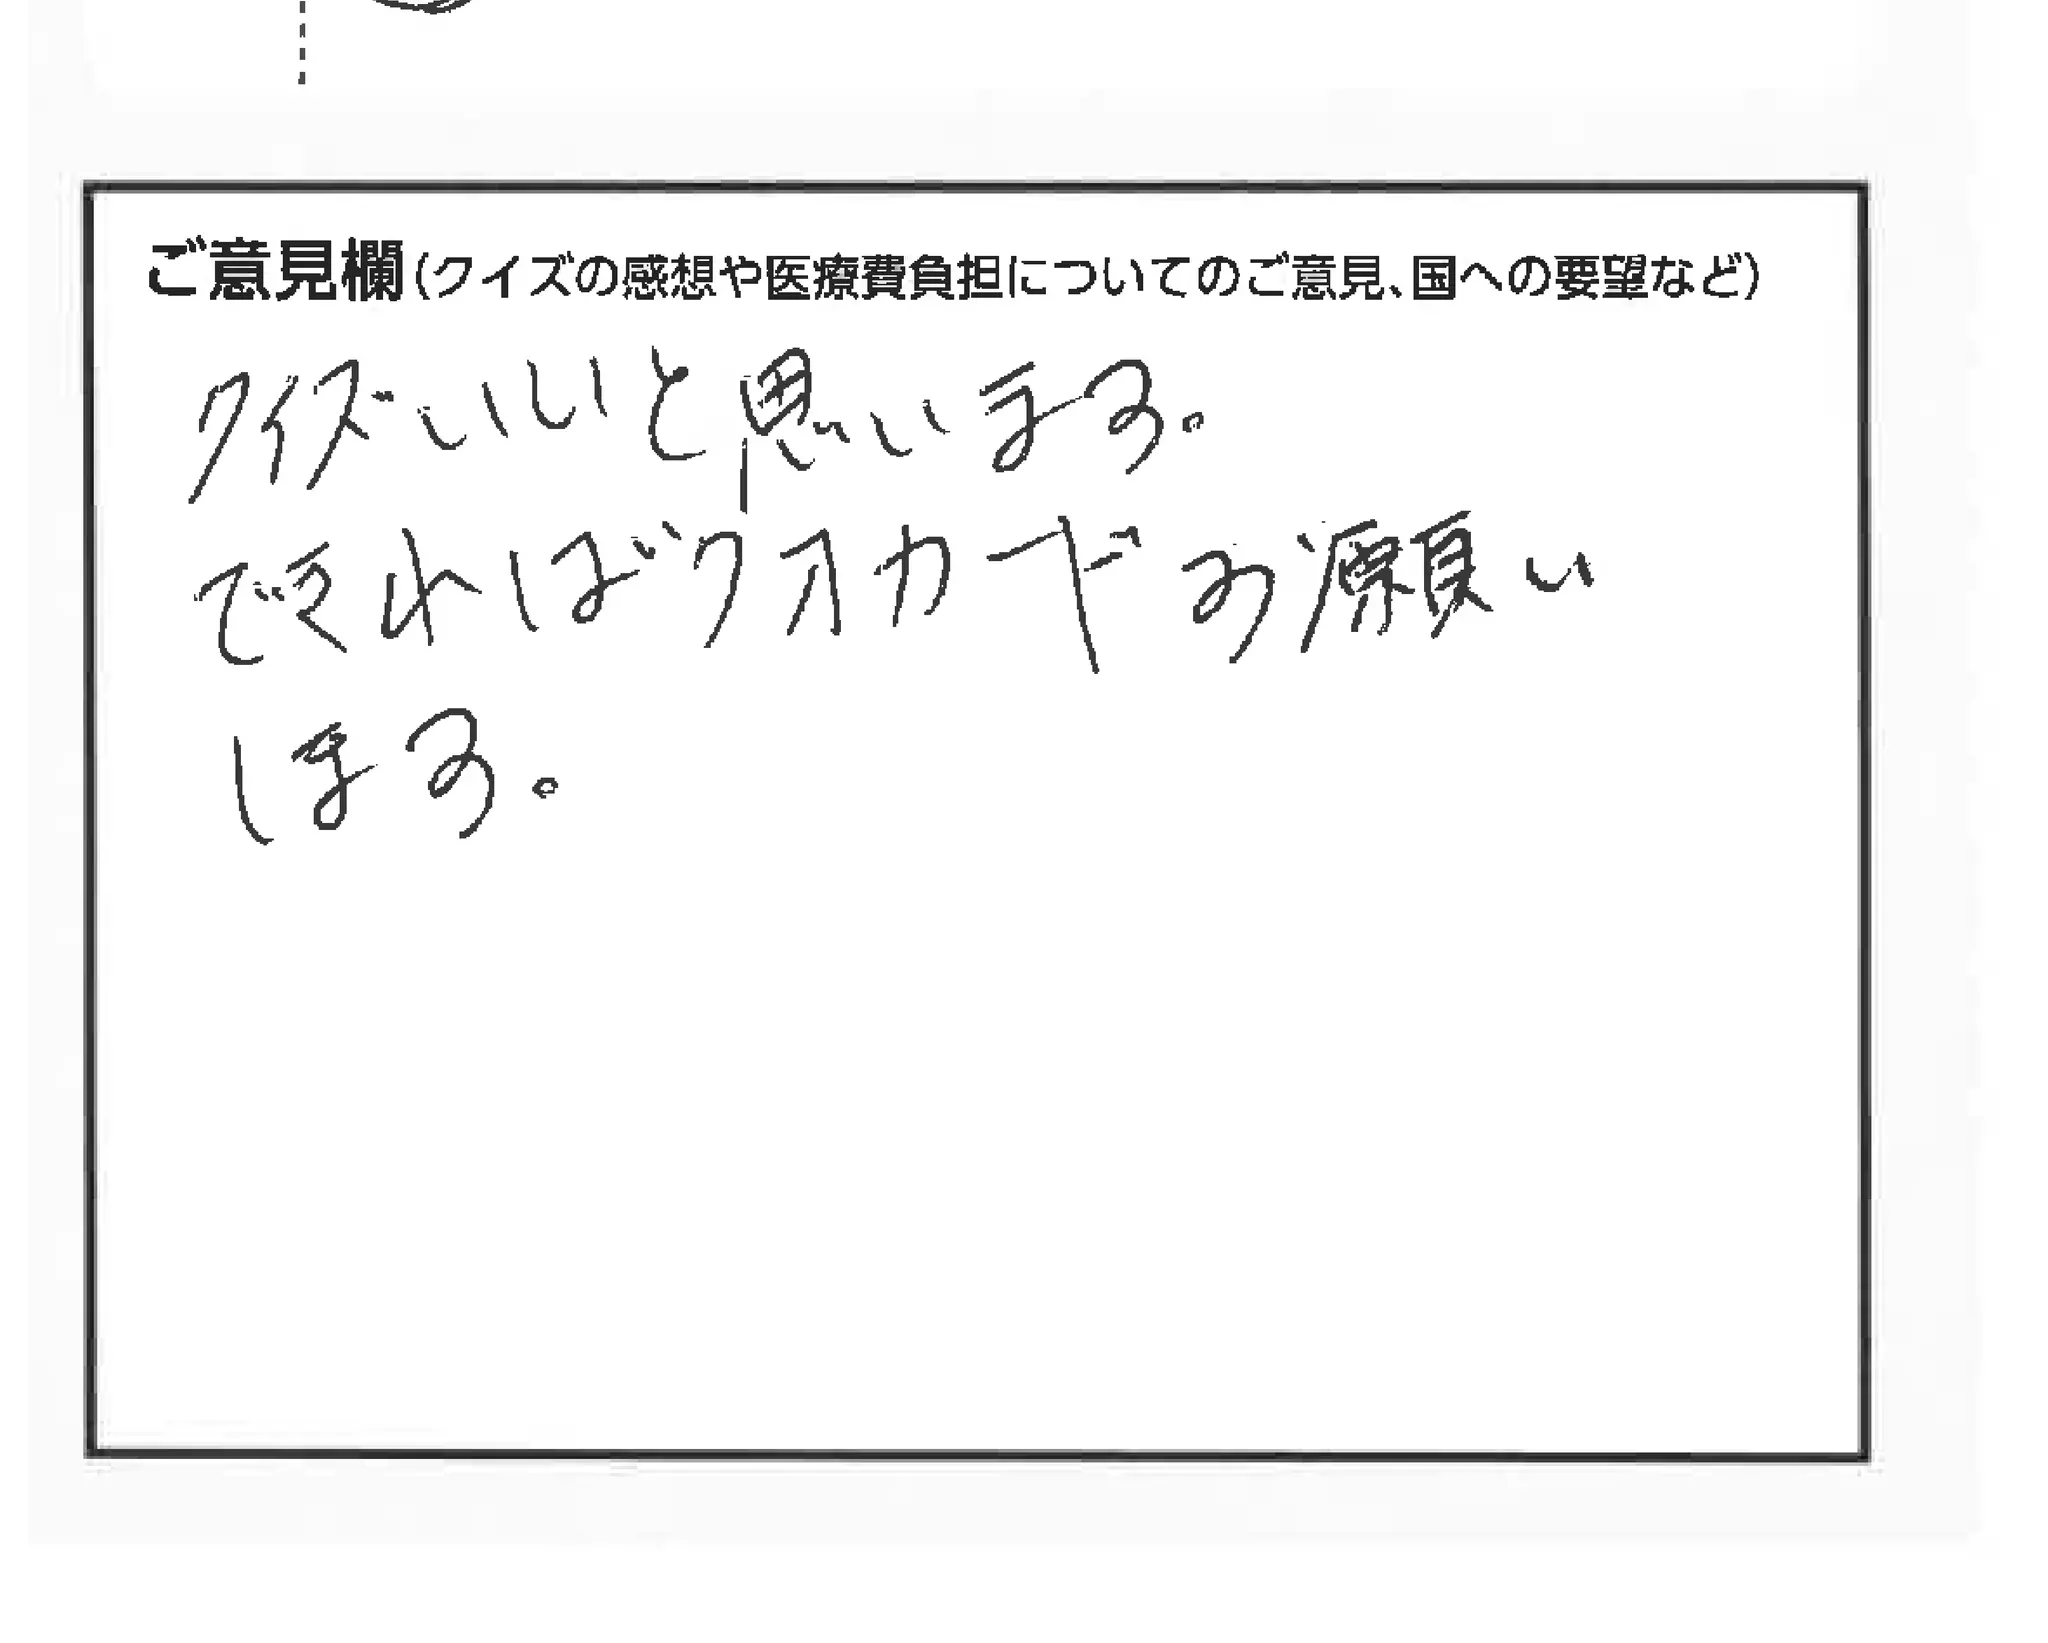 ご意見欄(クイズの感想や医療費負担についてのご意見、国への要望など)
クイズいいと思います。
できればクオカードお願い
します。